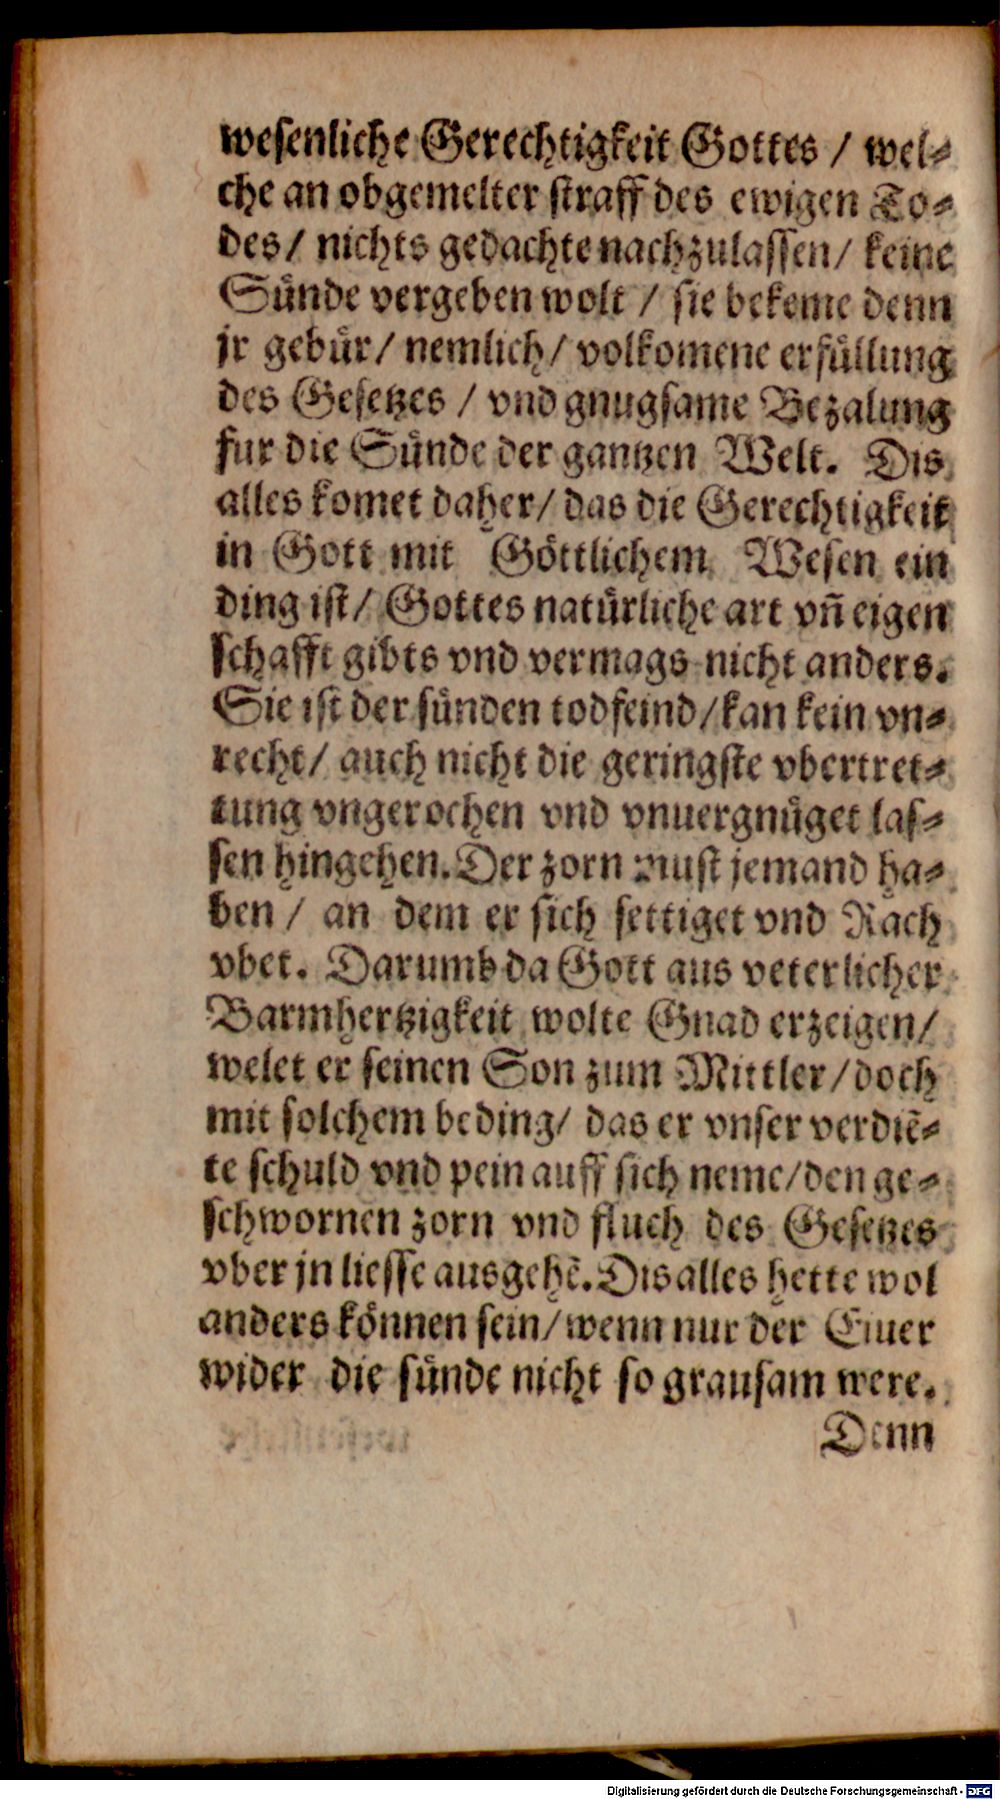 wesenliche Gerechtigkeit Gottes / wel⸗
che an obgemelter straff des ewigen To⸗
des / nichts gedachte nachzulassen / keine
Sünde vergeben wolt / sie bekeme denn
jr gebür / nemlich / volkomene erfüllung
des Gesetzes / vnd gnugsame Bezalung
fur die Sünde der gantzen Welt. Dis
alles komet daher / das die Gerechtigkeit
in Gott mit Göttlichem Wesen ein
ding ist / Gottes natürliche art vñ eigen
schafft gibts vnd vermags nicht anders.
Sie ist der sünden todfeind / kan kein vn⸗
recht / auch nicht die geringste vbertret⸗
tung vngerochen vnd vnuergnüget las⸗
sen hingehen. Der zorn must jemand ha⸗
ben / an dem er sich settiget vnd Rach
vbet. Darumb da Gott aus veterlicher
Barmhertzigkeit wolte Gnad erzeigen /
welet er seinen Son zum Mittler / doch
mit solchem beding / das er vnser verdiẽ⸗
te schuld vnd pein auff sich neme / den ge⸗
schwornen zorn vnd fluch des Gesetzes
vber jn liesse ausgehẽ. Dis alles hette wol
anders können sein / wenn nur der Eiuer
wider die sünde nicht so grausam were.
Denn
Digitalisierung gefördert durch die Deutsche Forschungsgemeinschaft - DFG